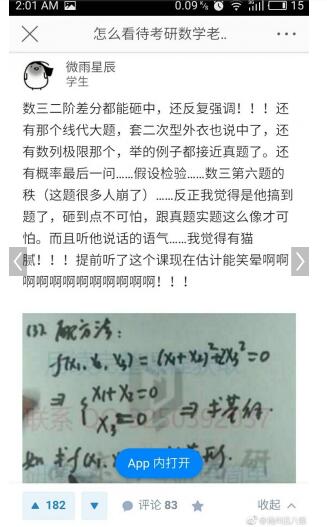 2:01 AM
0.09 ⁵⁄ₛ
15
怎么看待考研数学老..
微雨星辰
学生
数三二阶差分都能砸中，还反复强调！！！还
有那个线代大题，套二次型外衣也说中了，还
有数列极限那个，举的例子都接近真题了。还
有概率最后一问……假设检验……数三第六题的
秩（这题很多人崩了）……反正我觉得是他搞到
题了，砸到点不可怕，跟真题实题这么像才可
怕。而且听他说话的语气……我觉得有猫
腻！！！提前听了这个课现在估计能笑晕啊啊
啊啊啊啊啊啊啊啊啊啊！！！
(3) 配方法：
f(x₁, x₂, x₃) = (x₁+x₂)²+2x₃² = 0
⇒ { x₁+x₂=0
x₃=0
⇒ 求基础
联系 QQ
App 内打开
182
评论 83
收起